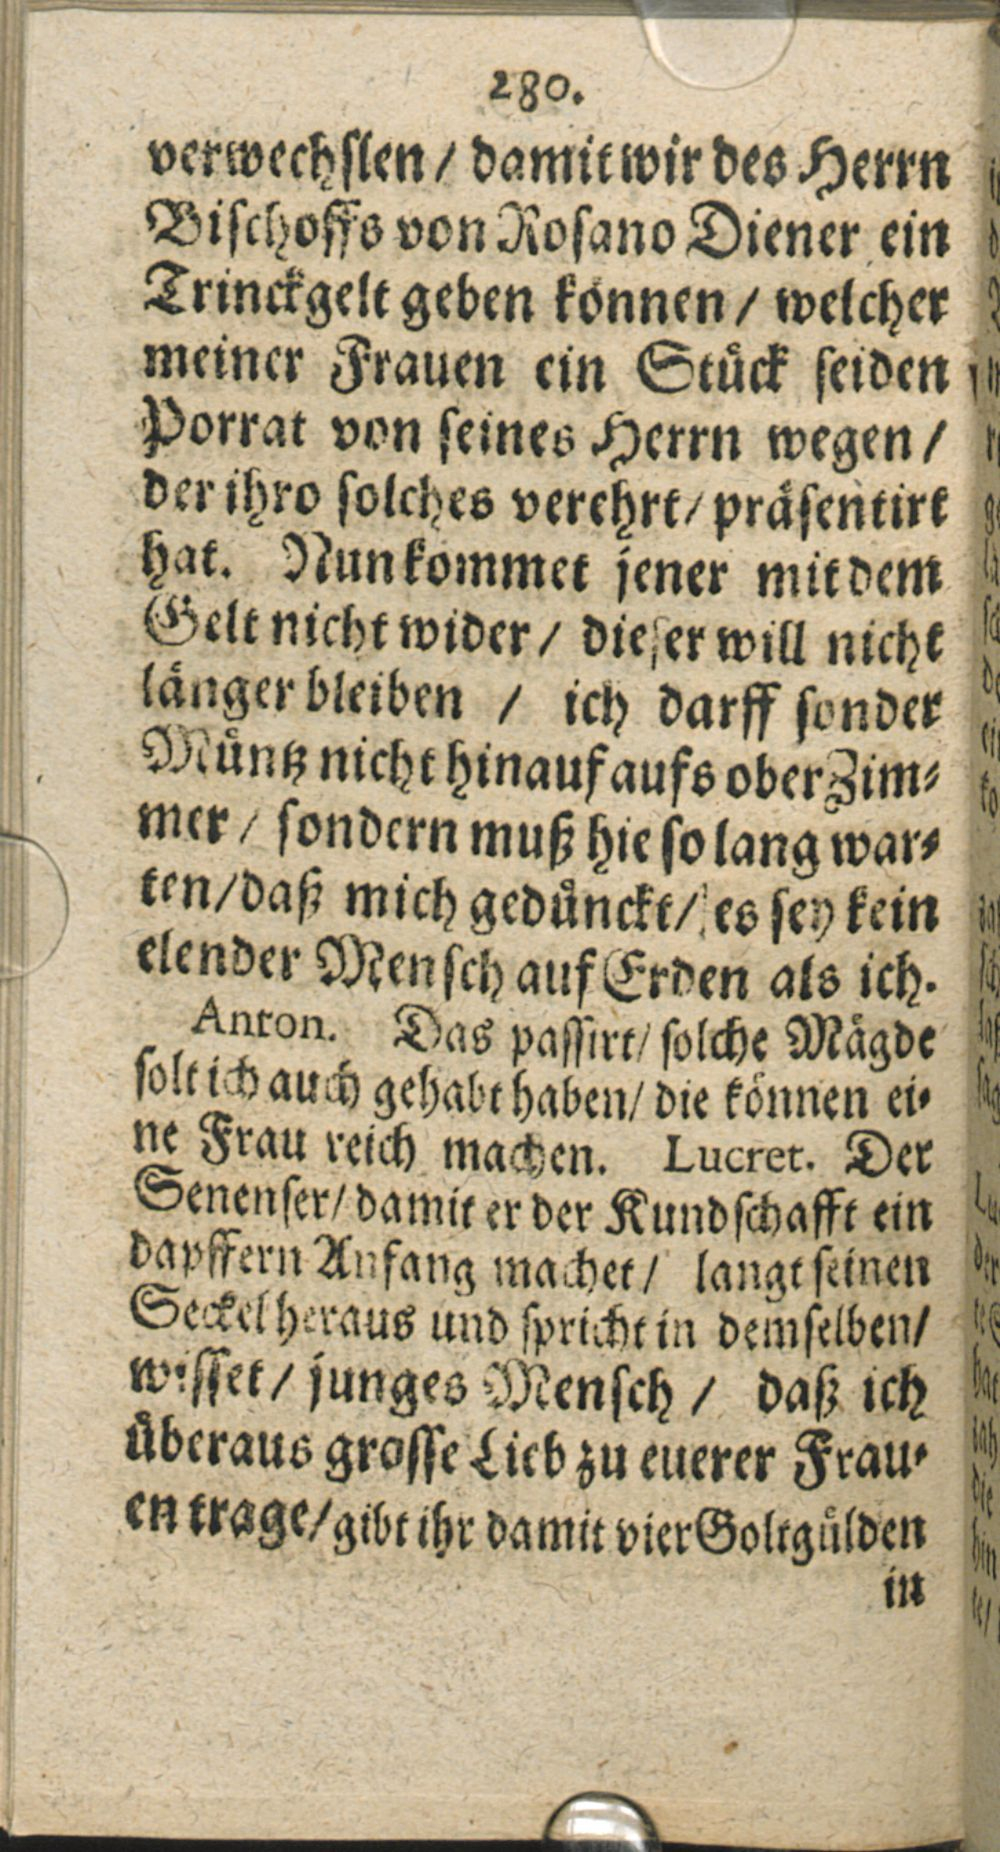 280.
verwechslen / damit wir des Herrn
Bischoffs von Rosano Diener ein
Trinckgelt geben können / welcher
meiner Frauen ein Stück seiden
Porrat von seines Herrn wegen /
der ihro solches verehrt / präsentirt
hat. Nun kommet jener mit dem
Gelt nicht wider / dieser will nicht
länger bleiben / ich darff sonder
Müntz nicht hinauf aufs ober Zim-
mer / sondern muß hie so lang war-
ten / daß mich gedünckt / es sey kein
elender Mensch auf Erden als ich.
Anton. Das passirt / solche Mägde
solt ich auch gehabt haben / die können ei-
ne Frau reich machen. Lucret. Der
Senenser / damit er der Kundschafft ein
dapffern Anfang machet / langt seinen
Seckel heraus und spricht in demselben /
wisset / junges Mensch / daß ich
überaus grosse Lieb zu euerer Frau-
en trage / gibt ihr damit vier Goltgülden
in